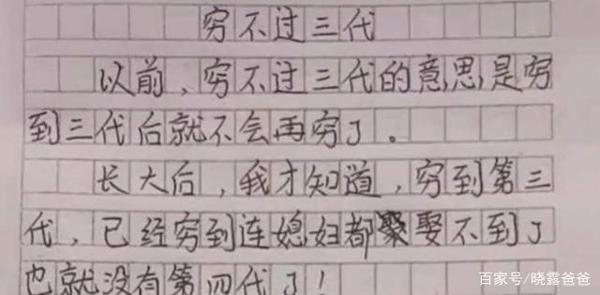 穷不过三代
以前，穷不过三代的意思是穷
到三代后就不会再穷了。
长大后，我才知道，穷到第三
代，已经穷到连媳妇都娶不到了
也就没有第四代了！
百家号/晓露爸爸